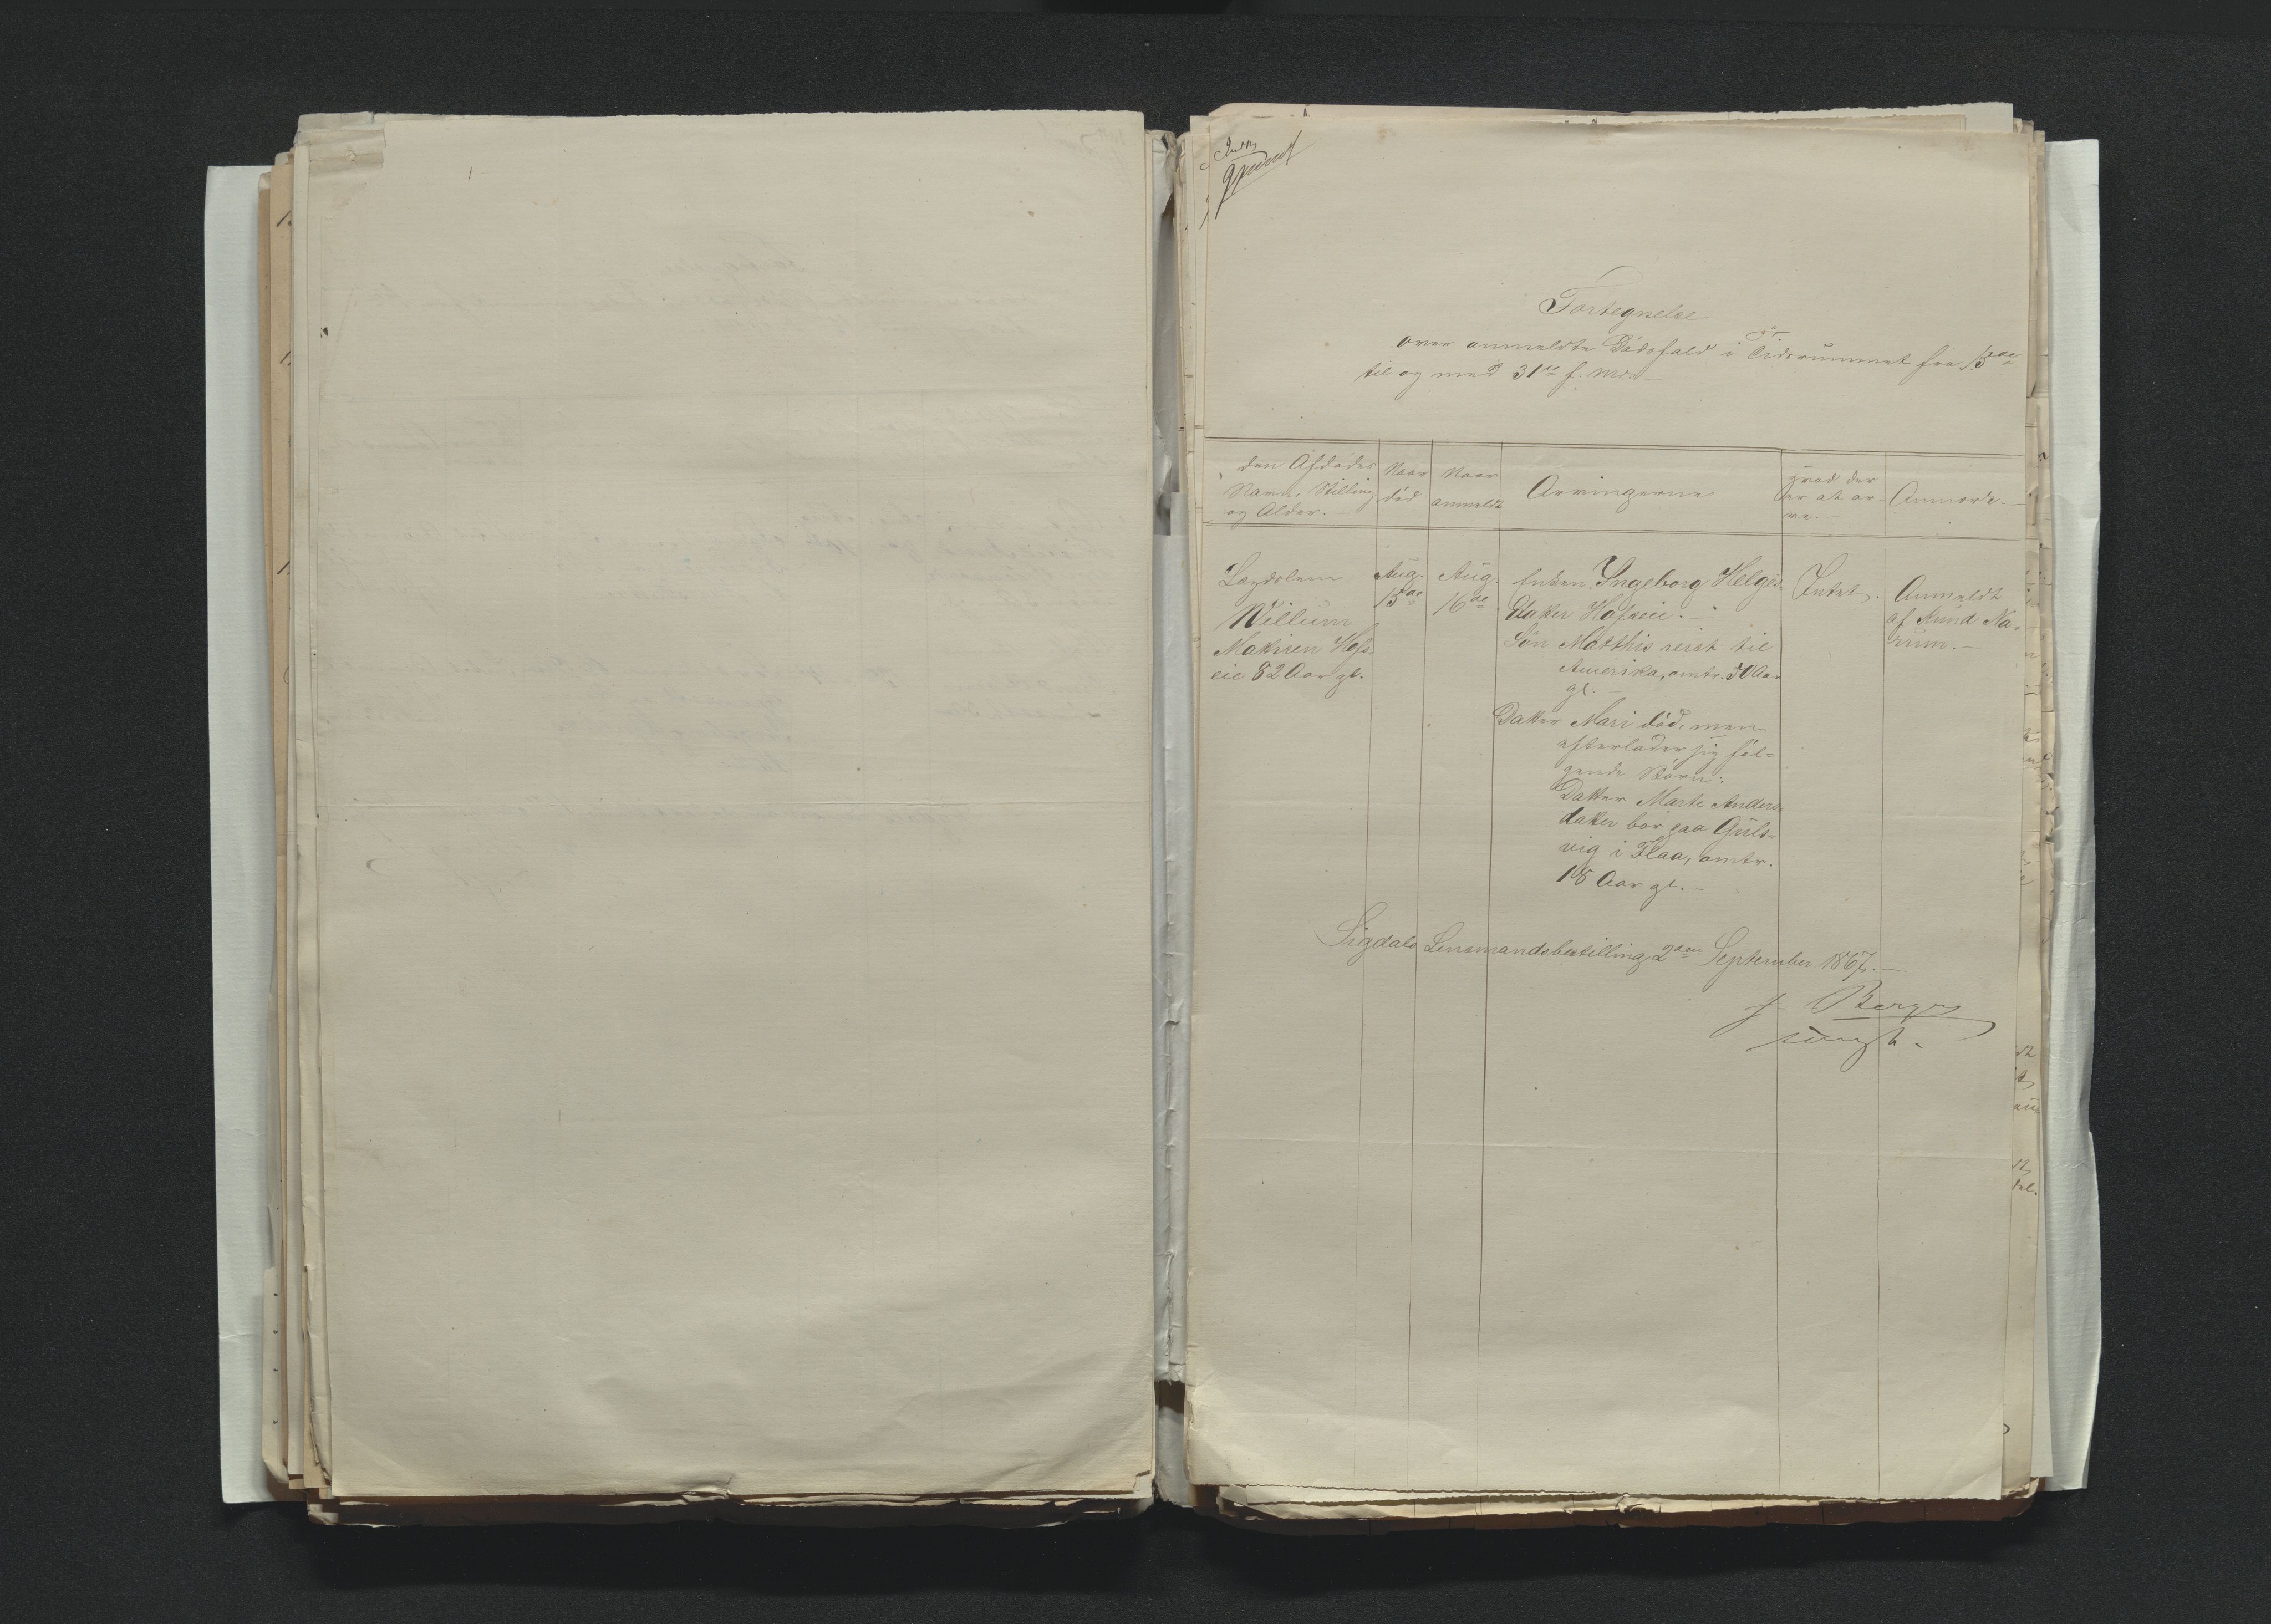 Fortegnelse
over anmeldte Dødsfald i Tidsrummet fra 15de
til og med 31te f. Md.
den Afdødes
Navn, Stilling
og Alder.
Naar
død
Naar
anmeldt
Arvingerne
hvad der
er at ar-
ve.
Anmærk.
Lægdslem
Willum
Makisen Hofs-
eie 82 Aar gl.
Aug.
15de
Aug.
16de
Enken Ingeborg Helges-
datter Hofseie.
Søn Matthis reist til
Amerika, omtr. 50 Aar
gl.
Datter Mari død, men
efterlader sig føl-
gende Børn:
Datter Marte Anders-
datter bor paa Guls-
vig i Flaa, omtr.
18 Aar gl.
Intet.
Anmeldt
af Knud Na-
rum.
Sigdals Lensmandsbestilling 2den September 1867.
Berger